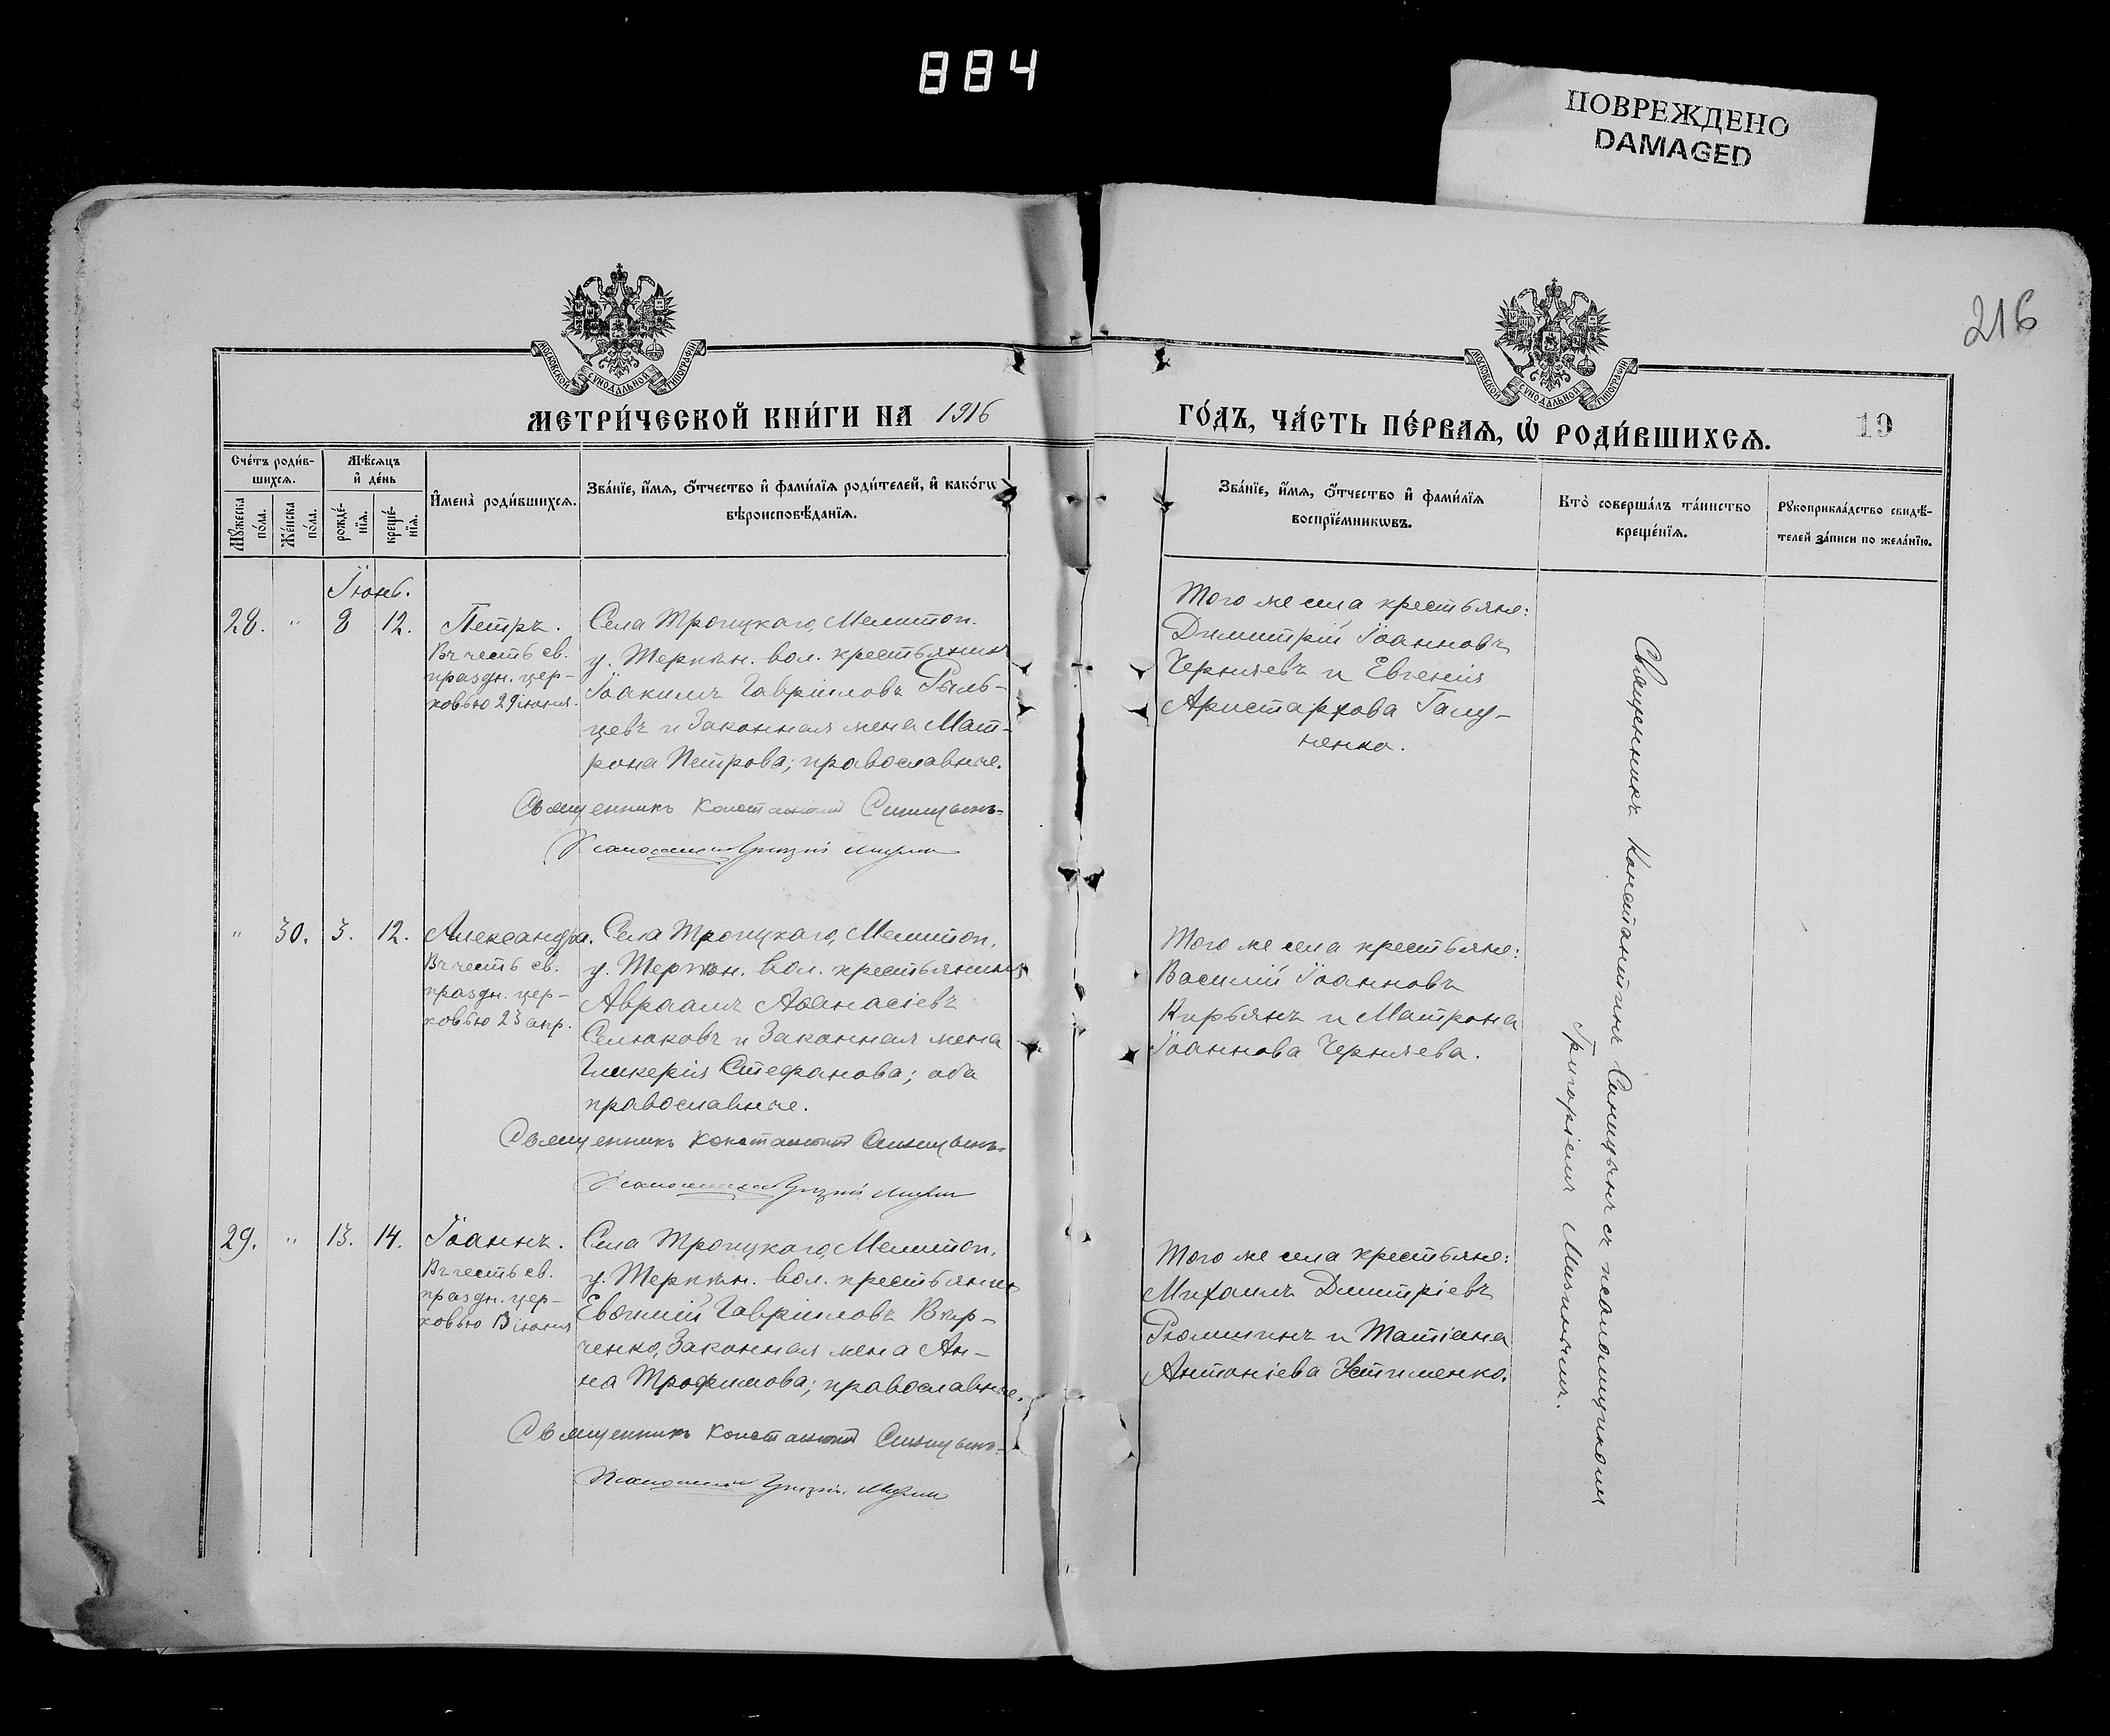 884
ПОВРЕЖДЕНО
DAMAGED
216
МОСКОВСКОЙ СѴНОДАЛЬНОЙ ТИПОГРАФІИ
МОСКОВСКОЙ СѴНОДАЛЬНОЙ ТИПОГРАФІИ
МЕТРИ́ЧЕСКОЙ КНИ́ГИ НА 1916
ГО́ДЪ, ЧА́СТЬ ПЕ́РВАѦ, Ѡ҆ РОДИ́ВШИХСѦ.
19
Сче́тъ роди́в-
шихсѧ.
Мѣ́сѧцъ
и҆ де́нь
Мꙋ́жеска
по́ла.
Же́нска
по́ла.
рожде́-
нїѧ.
креще́-
нїѧ.
И҆мена̀ роди́вшихсѧ.
Зва́нїе, и҆́мѧ, ѻ҆́тчество и҆ фами́лїѧ роди́телей, и҆ како́гѡ
вѣроисповѣ́данїѧ.
Зва́нїе, и҆́мѧ, ѻ҆́тчество и҆ фами́лїѧ
воспрїе́мникѡвъ.
Кто̀ соверша́лъ та́инство
креще́нїѧ.
Рꙋкоприкла́дство свидѣ́-
телей за́писи по жела́нїю.
Іюнь.
28. " 8 12. Петръ.
Въ честь св.
праздн. цер-
ковью 29 іюня.
Села Троицкаго, Мелитоп.
у. Терпѣн. вол. крестьянинъ
Іоакимъ Гавріиловъ Рыль-
цевъ и законная жена Мат-
рона Петрова; православные.
Священникъ Константинъ Синицынъ
Псаломщикъ Григорій Мизинъ
Того же села крестьяне:
Димитрій Іоанновъ
Черняевъ и Евгенія
Аристархова Галу-
ненко.
" 30. 3. 12. Александра.
Въ честь св.
праздн. цер-
ковью 23 апр.
Села Троицкаго, Мелитоп.
у. Терпѣн. вол. крестьянинъ
Авраамъ Аѳанасіевъ
Селюковъ и законная жена
Гликерія Стефанова; оба
православные.
Священникъ Константинъ Синицынъ
Псаломщикъ Григорій Мизинъ
Того же села крестьяне:
Василій Іоанновъ
Кирьянъ и Матрона
Іоаннова Черняева.
29. " 13. 14. Іоаннъ.
Въ честь св.
праздн. цер-
ковью 13 іюня
Села Троицкаго, Мелитоп.
у. Терпѣн. вол. крестьянинъ
Евѳимій Гавріиловъ
ченко, законная жена Ан-
на Трофимова; православные.
Священникъ Константинъ Синицынъ
Псаломщикъ Григорій Мизинъ
Того же села крестьяне:
Михаилъ Димитріевъ
Рюмшинъ и Татіана
Антоніева Устименко.
Священникъ Константинъ Синицынъ съ псаломщикомъ
Григоріемъ Мизинымъ.